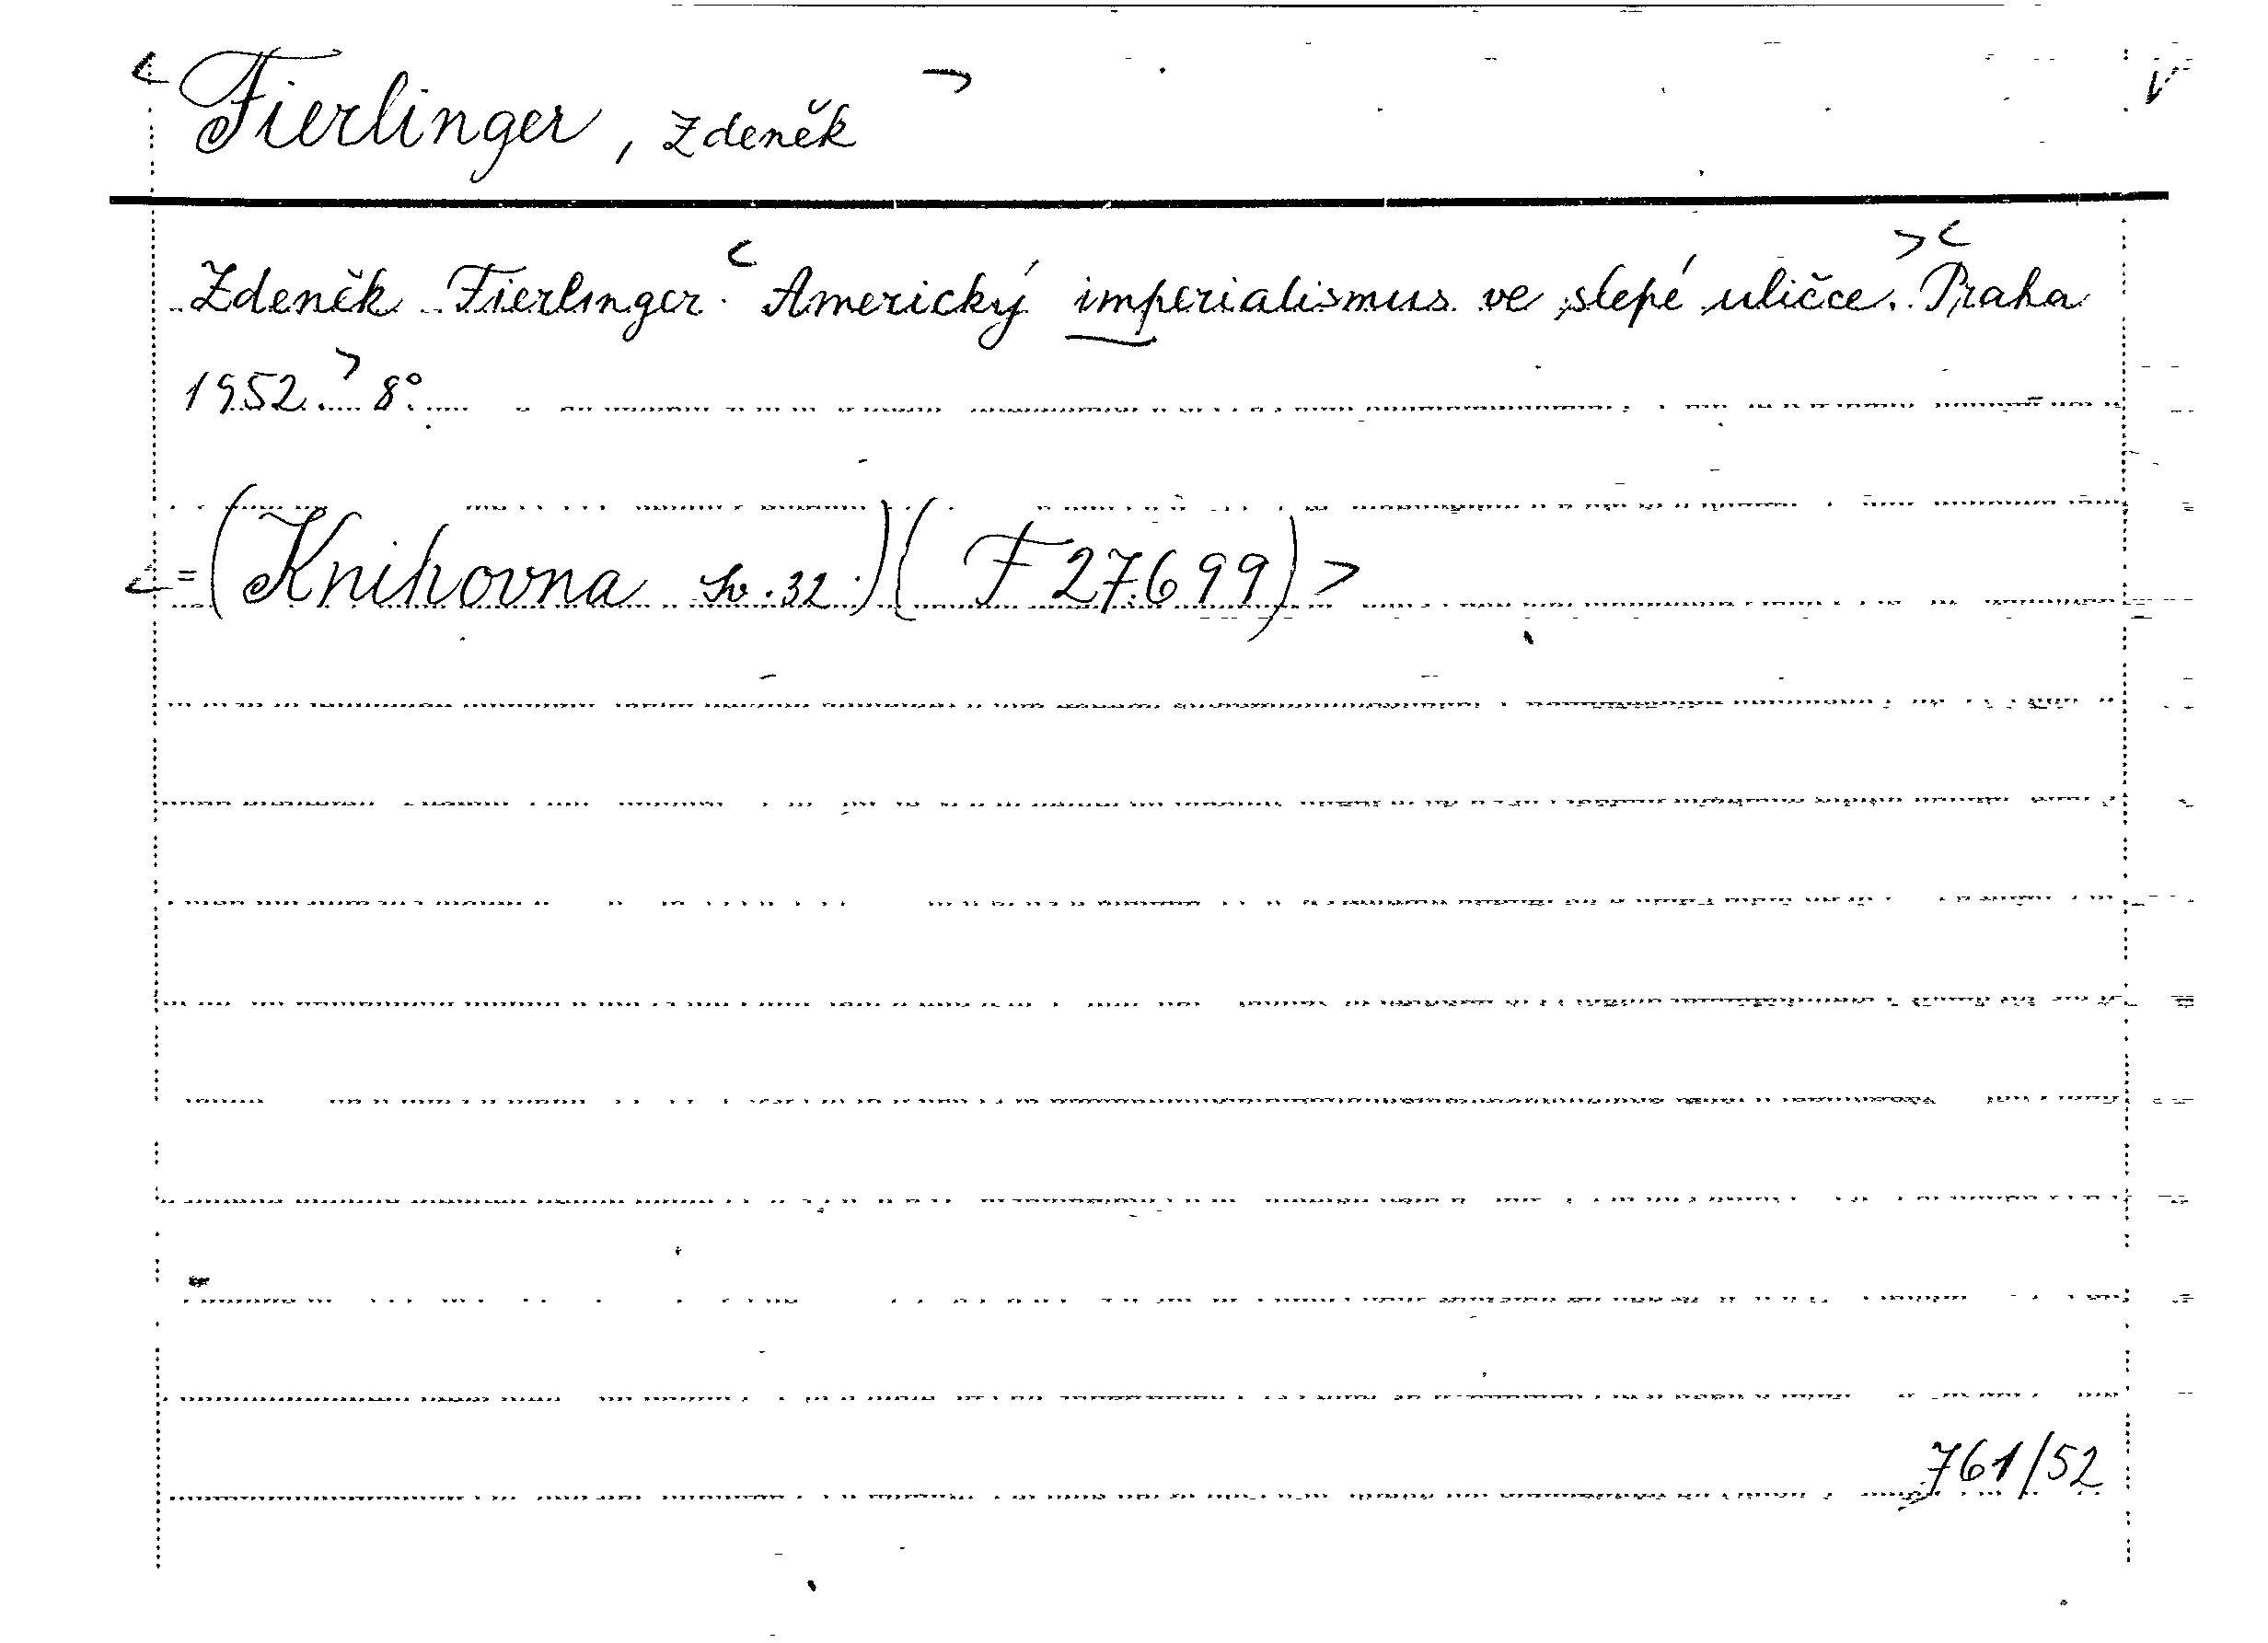 <Fierlinger, Zdeněk> V
Zdeněk Fierlinger. <Americký imperialismus ve slepé uličce.> <Praha
1952.> 8°.
<=(Knihovna Sv. 32.)(F 27.699)>
761/52